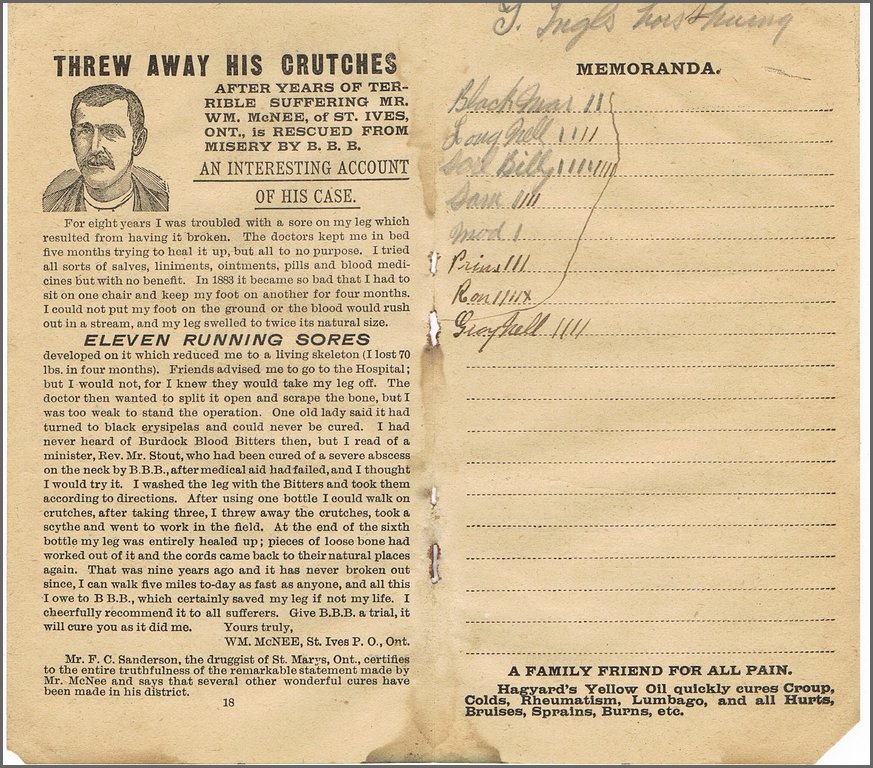 THREW AWAY HIS CRUTCHES
AFTER YEARS OF TER-
RIBLE SUFFERING MR.
WM. McNEE, of ST. IVES,
ONT., is RESCUED FROM
MISERY BY B. B. B.
AN INTERESTING ACCOUNT
OF HIS CASE.
For eight years I was troubled with a sore on my leg which
resulted from having it broken. The doctors kept me in bed
five months trying to heal it up, but all to no purpose. I tried
all sorts of salves, liniments, ointments, pills and blood medi-
cines but with no benefit. In 1883 it became so bad that I had to
sit on one chair and keep my foot on another for four months.
I could not put my foot on the ground or the blood would rush
out in a stream, and my leg swelled to twice its natural size.
ELEVEN RUNNING SORES
developed on it which reduced me to a living skeleton (I lost 70
lbs. in four months). Friends advised me to go to the Hospital;
but I would not, for I knew they would take my leg off. The
doctor then wanted to split it open and scrape the bone, but I
was too weak to stand the operation. One old lady said it had
turned to black erysipelas and could never be cured. I had
never heard of Burdock Blood Bitters then, but I read of a
minister, Rev. Mr. Stout, who had been cured of a severe abscess
on the neck by B.B.B., after medical aid had failed, and I thought
I would try it. I washed the leg with the Bitters and took them
according to directions. After using one bottle I could walk on
crutches, after taking three, I threw away the crutches, took a
scythe and went to work in the field. At the end of the sixth
bottle my leg was entirely healed up; pieces of loose bone had
worked out of it and the cords came back to their natural places
again. That was nine years ago and it has never broken out
since, I can walk five miles to-day as fast as anyone, and all this
I owe to B B B., which certainly saved my leg if not my life. I
cheerfully recommend it to all sufferers. Give B.B.B. a trial, it
will cure you as it did me. Yours truly,
WM. McNEE, St. Ives P. O., Ont.
Mr. F. C. Sanderson, the druggist of St. Marys, Ont., certifies
to the entire truthfulness of the remarkable statement made by
Mr. McNee and says that several other wonderful cures have
been made in his district.
18
MEMORANDA.
Black
Billy
Sam
Gray
A FAMILY FRIEND FOR ALL PAIN.
Hagyard's Yellow Oil quickly cures Croup,
Colds, Rheumatism, Lumbago, and all Hurts,
Bruises, Sprains, Burns, etc.